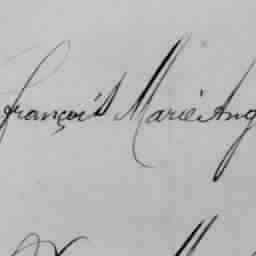 françois Marie Aug